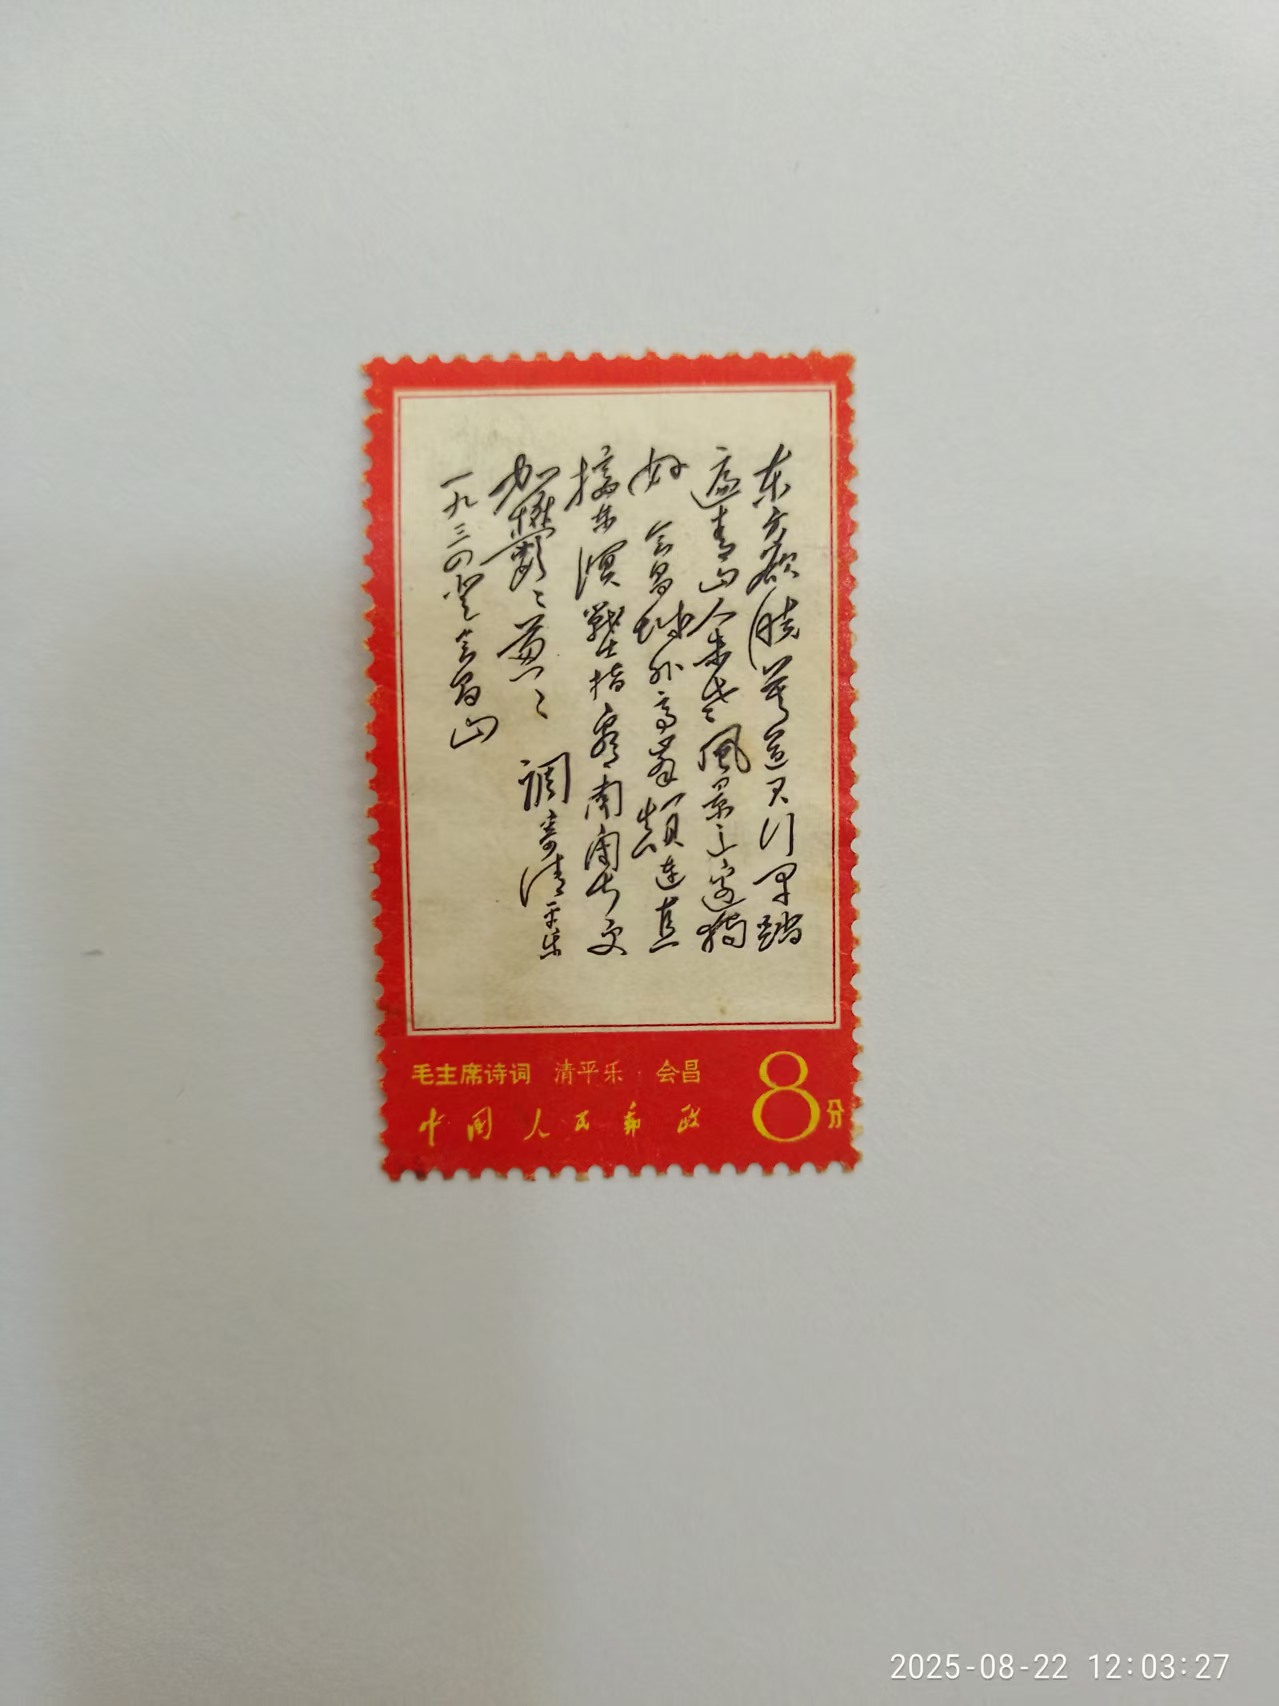 东方欲晓莫道君行早踏
遍青山人未老風景这边独
好 会昌城外高峯顛连直
接东溟戰士指看南粤更
加鬱〻葱〻 调寄清平乐
一九三四登会昌山
毛主席诗词 清平乐 会昌
中国人民邮政
8分
2025-08-22 12:03:27